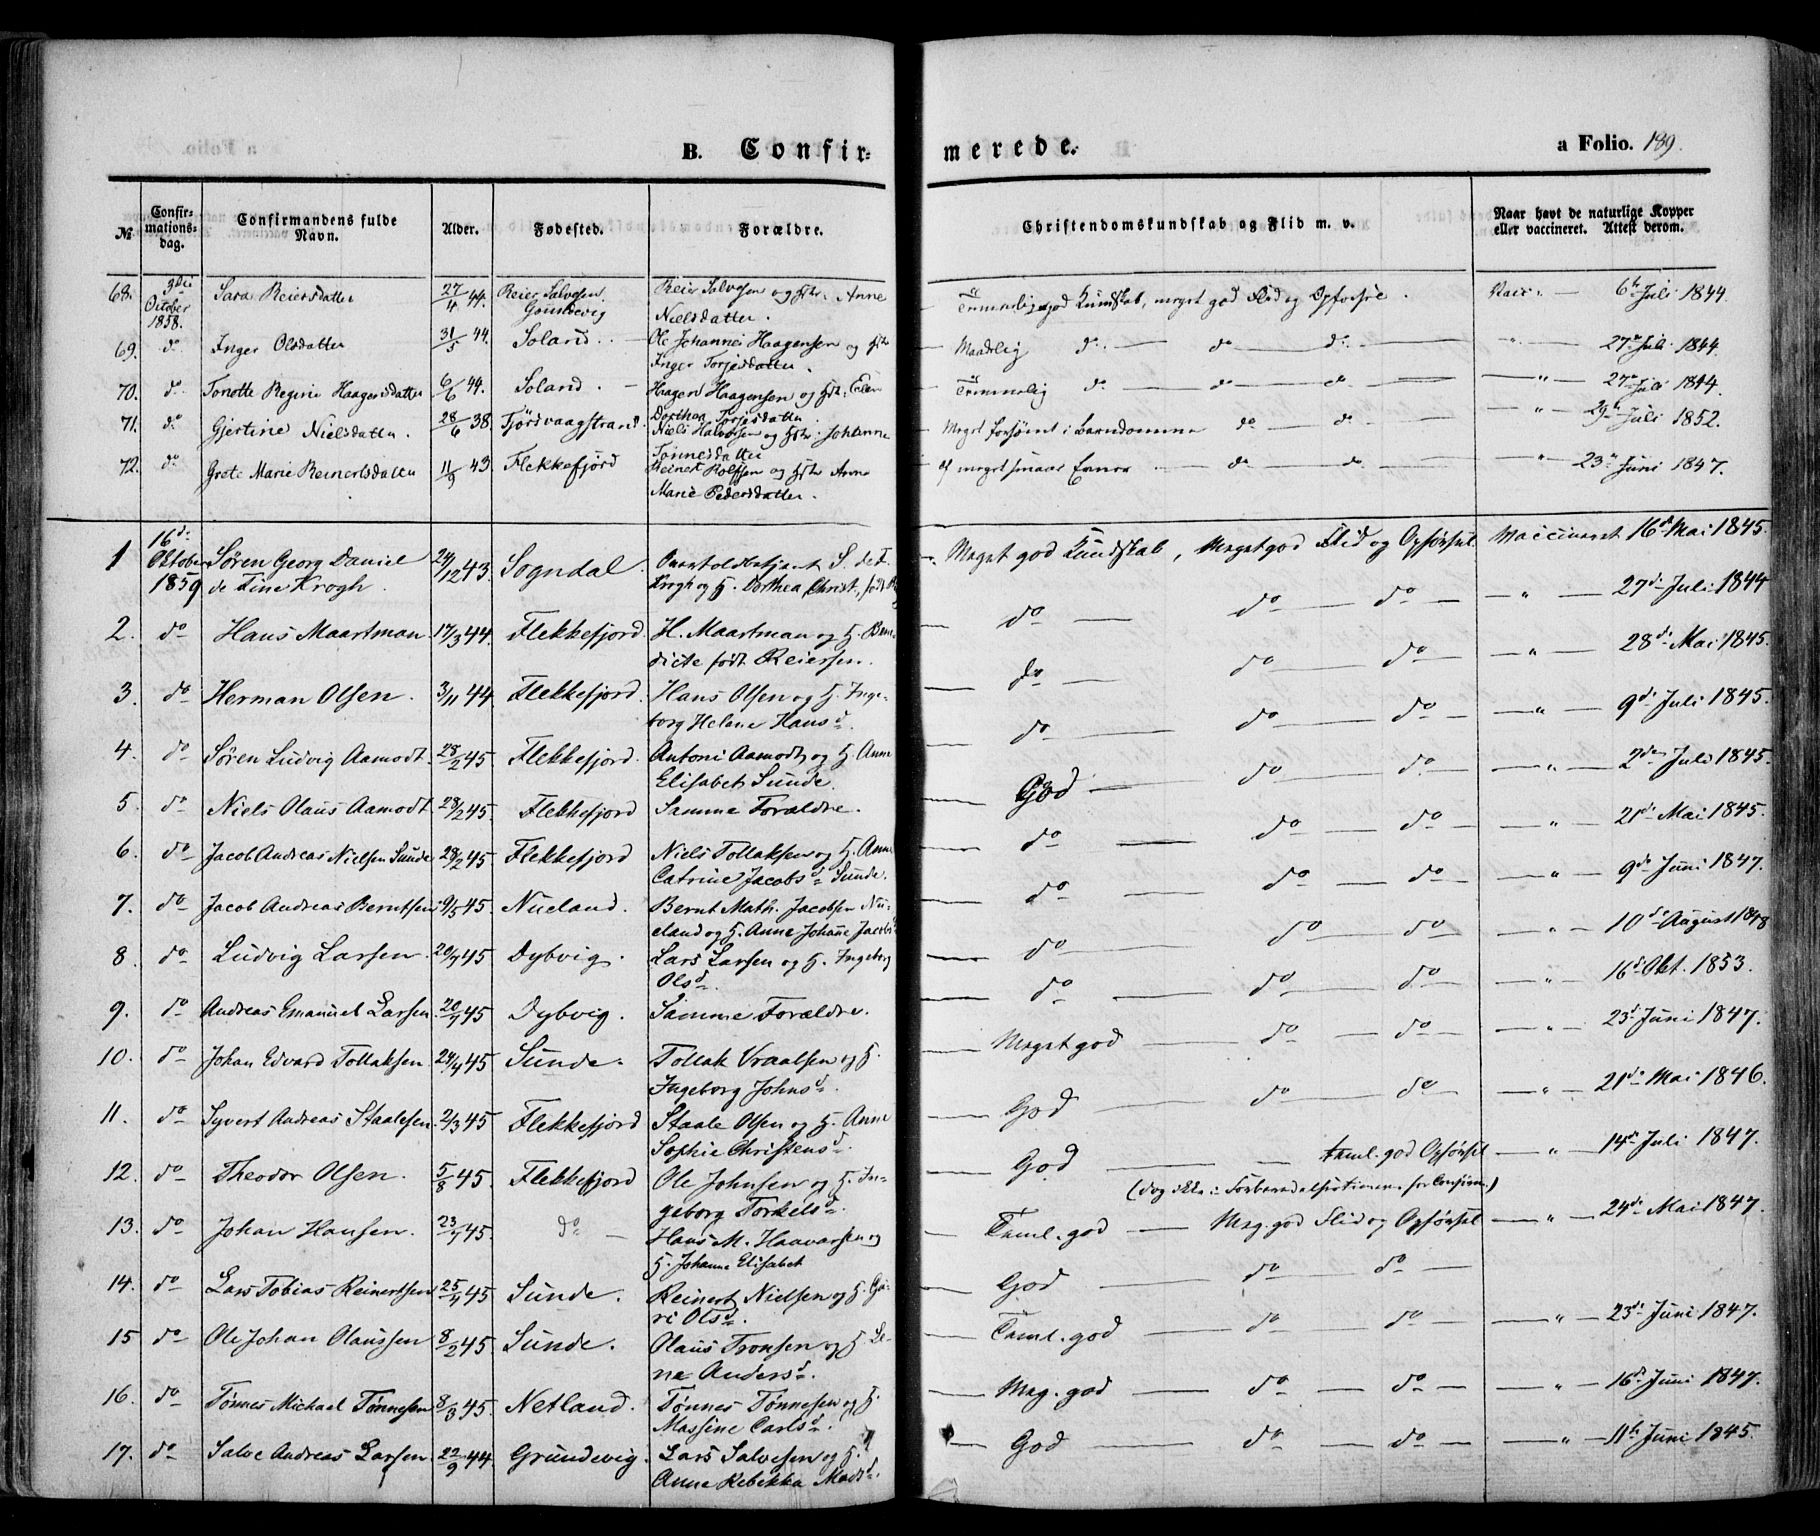 B. Confir-
merede.
a Folio. 189.
№
Confir-
mations-
dag.
Confirmandens fulde
Navn.
Alder.
Fødested.
Forældre.
Christendomskundskab og Flid m. v.
Naar havt de naturlige Kopper
eller vaccineret. Attest derom.
68. October 1858. Sara Reiersdatter 27/4 44. Reier Salvesen Reier Salvesen og Anne
Nielsdatter. god Kundskab, meget god Flid og 6te Juli 1844.
69. do Inger Olsdatter 31/5 44. Soland. Ole Johannes Haagensen og
Inger Torjesdatter. Maadelig do do do " 27de Juli 1844.
70. do Tonette Regine Haagensdatter 6/6 44. Soland. Haagen Haagensen og
Dorthea Torjesdatter do do do " 27de Juli 1844.
71. do Gjertine Nielsdatter. 28/6 38. Niels Halvorsen og Johanne
Tønnesdatter Meget forsømt i Barndommen do do " Juli 1852.
72. do Grete Marie Reinertsdatter 11/9 43. Flekkefjord Reinert og Anne
Marie Pedersdatter. af meget smaae Evner do do " 23de Juni 1847.
1 16de Oktober 1859 Søren Georg Daniel 24/12 43. Sogndal S. de F.
de Fine Krogh. Krogh og H. Dorthea Christ. Meget god Kundskab, Meget god Flid og Opførsel. Vaccineret 16de Mai 1845.
2. do Hans Maartman 17/3 44. Flekkefjord. H. Maartman og H. Ben-
dicte født Reiersen. do do do " 27de Juli 1844
3. do Herman Olsen. 3/11 44 Flekkefjord. Hans Olsen og H. Inge-
borg Helene Hansd. do do do " 28de Mai 1845.
4. do Søren Ludvig Aamodt. 28/2 45 Flekkefjord. Antoni Aamodt og H. Anne
Elisabet Sunde. do do do " 9de Juli 1845.
5. do Niels Olaus Aamodt 28/2 45. Flekkefjord Samme Forældre. God do do " 2den Juli 1845.
6. do Jacob Andreas Nielsen Sunde 28/2 45 Flekkefjord Niels Tollaksen og H. Anne
Catrine Jacobsd. Sunde. do do do " 21de Mai 1845.
7. do Jacob Andreas Berntsen 9/5 45 Nueland. Bernt Math. Jacobsen Nu-
eland og H. Anne Johane Jacobsd do do do " 9de Juni 1847.
8. do Ludvig Larsen. 20/7 45 Dybvig. Lars Larsen og H. Ingeborg
Olsd. do do do " 10de August 1848
9. do Andreas Emanuel Larsen. 20/7 45 Dybvig. Samme Forældre. do do do " 16de Okt. 1853.
10. do Johan Edvard Tollaksen 24/4 45 Sunde. Tollak Vraalsen og H.
Ingeborg Johnsd. Meget god do do " 23de Juni 1847.
11. do Syvert Andreas Staalesen 2/3 45 Flekkefjord Staale Olsen og H. Anne
Sophie Christensd. God do do " 21de Mai 1846.
12. do Theodor Olsen. 5/8 45. Flekkefjord Ole Johnsen og H. In-
geborg Torkelsd. God teml. god Opførsel " 14de Juli 1847.
(dog ikke i for Confirm.)
13. do Johan Hansen. 45. do Hans M. Haavarsen og
H. Johanne Elisabet Teml. god Meg. god Flid og Opførsel " 24de Mai 1847.
14. do Lars Tobias Reinertsen 25/4 45 Sunde. Reinert Nielsen og H. Gu-
ri Olsd. God do do
15 do Ole Johan Olaussen 8/2 45 Sunde. Olaus Tronsen og H. Le-
ne Andersd. Teml. god do do " 23de Juni 1847.
16. do Tønnes Michael Tønnesen 8/3 45. Netland. Tønnes Tønnesen og H.
Massine Carlsd. Meg. god do do " 16de Juni 1847.
17. do Salve Andreas Larsen 22/9 44 Grundevig. Lars Salvesen og H.
Anne Rebekka Madsd. God do do " 11te Juni 1845.